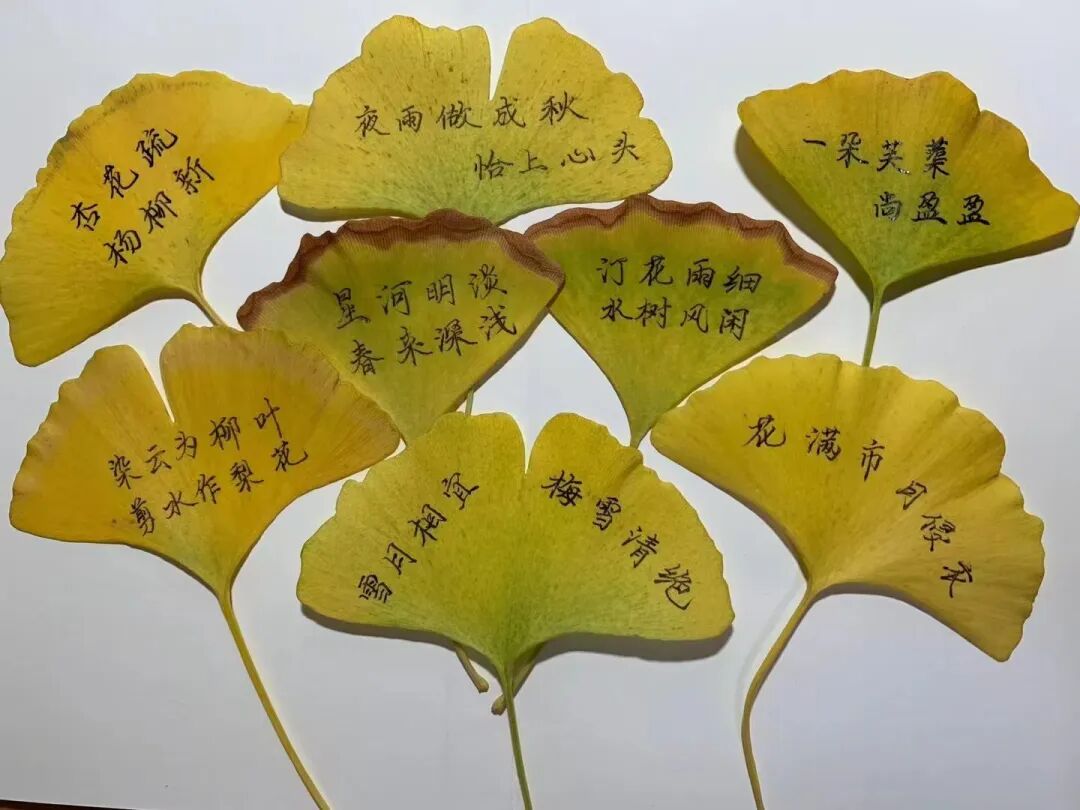 杏花疏
杨柳新
夜雨做成秋
怡上心头
一朵芙蕖
尚盈盈
星河明淡
春来深浅
汀花雨细
水树风闲
染云为柳叶
剪水作梨花
雪月相宜
梅雪清绝
花满市
月侵衣